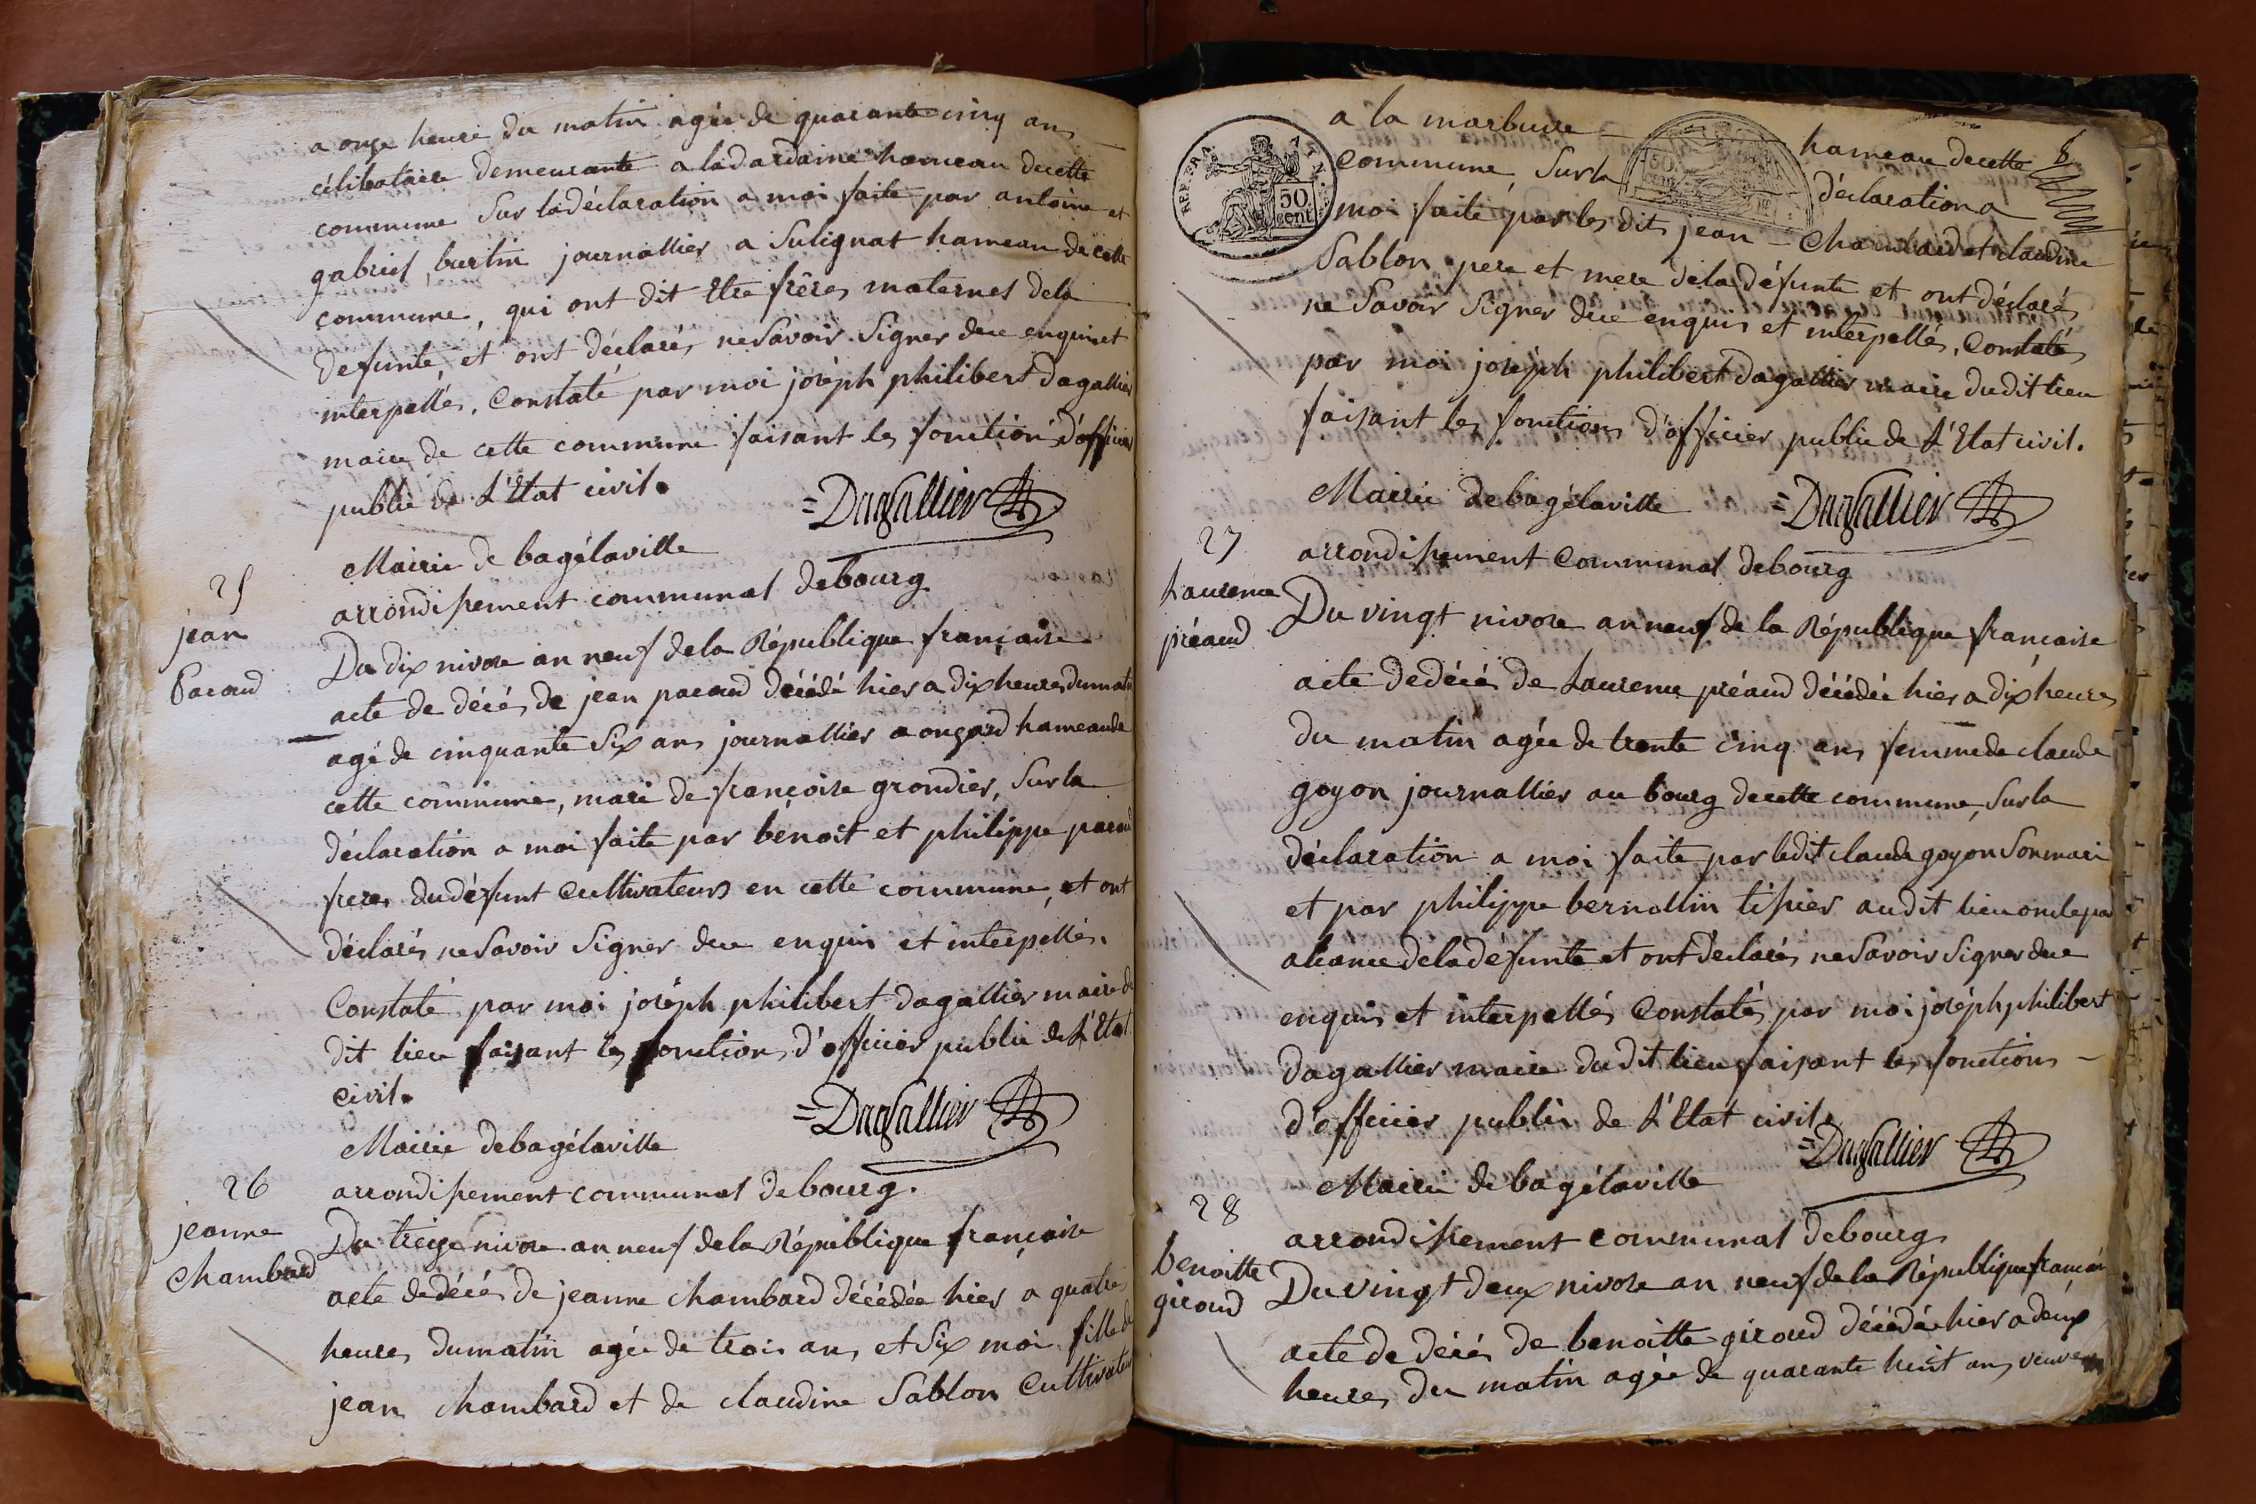 a onze heure du matin agée de quarante cinq ans
célibataire demeurante a la dardaine hameau decette
commune Sur la déclaration a moi faite par antoine et
gabriel burtin journallier a Sulignat hameau de cette
commune, qui ont dit Etre frêres maternel dela
defunte, et ont déclarés ne Savoir Signer de ce enquis et
interpellés, Constaté par moi joséph philibert dagallier
maire de cette commune faisant les fonction d'officier
public de L'Etat civil.
=Dagallier
Mairie de bagélaville
arrondissement communal de bourg
25
jean
Pacoud
Du dix nivose an neuf de la République française
acte de décés de jean pacoud décédé hier a dix heures du matin
agé de cinquante Six ans journallier a ongard hameau de
cette commune, mari de françoise grondier, Sur la
déclaration a moi faite par benoit et philippe pacoud
freres du défunt Cultivateurs en cette commune, et ont
déclarés ne Savoir Signer de ce enquis et interpellés.
Constaté par moi joséph philibert dagallier maire du
dit lieu faisant les fonctions d'officier public de L'Etat
civil.
=Dagallier
Mairie de bagélaville
arrondissement communal de bourg.
26
jeanne
Chambard
Du treize nivose an neuf de la République française
acte de décés de jeanne chambard décédée hier a quatre
heures du matin agée de trois ans et Six moi fille de
jean chambard et de claudine Sablon Cultivateur
a la marbuise hameau de cette
commune, Sur la déclaration a
REP. FRA.
50
cent.
moi faite par les dits jean Chambard et claudine
Sablon pere et mere de la défunte et ont déclarés
ne Savoir Signer de ce enquis et interpellés, Constatés
par moi joséph philibert dagallier maire du dit lieu
faisant les fonctions d'officier public de L'Etat civil.
=Dagallier
Mairie de bagélaville
arrondissement Communal de bourg
27
Laurence
préaud
Du vingt nivose an neuf de la République francaise
acte de décés de Laurence préaud décédée hier a dix heures
du matin agée de trente cinq ans femme de claude
goyon journallier au bourg de cette commune, Sur la
déclaration a moi faite par ledit claude goyon Son mari
et par philippe bernollin tissier audit lieu oncle par
aliance de la défunte et ont déclarés ne Savoir Signer de ce
enquis et interpellés Constatés par moi joséph philibert
dagallier maire du dit lieu faisant les fonctions
d'officier public de L'Etat civil.
=Dagallier
Mairie de bagélaville
arrondissement communal de bourg
28
benoitte
giroud
Du vingt deux nivose an neuf de la République française
acte de décés de benoitte giroud décédée hier a deux
heures du matin agée de quarante huit ans, veuve